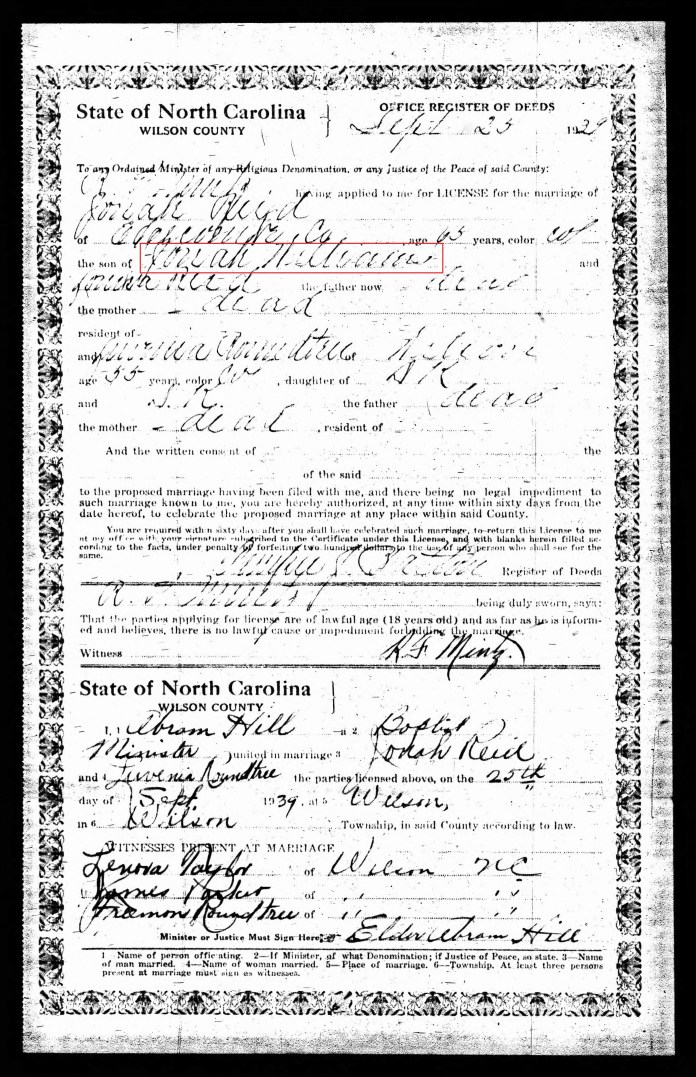 State of North Carolina
WILSON COUNTY
OFFICE REGISTER OF DEEDS
Sept 25 1929
To any Ordained Minister of any Religious Denomination, or any Justice of the Peace of said County:
having applied to me for LICENSE for the marriage of
Jonah Reid
of Edgecombe Co, age 65 years, color Col
the son of Jonah Williams and
Reid the father now dead
the mother dead
resident of
and Luvenia Roundtree of Wilson
age 55 years, color Col, daughter of D.K.
and D.K. the father dead
the mother dead, resident of
And the written consent of the
of the said
to the proposed marriage having been filed with me, and there being no legal impediment to
such marriage known to me, you are hereby authorized, at any time within sixty days from the
date hereof, to celebrate the proposed marriage at any place within said County.
You are required within sixty days after you shall have celebrated such marriage, to return this License to me
at my office with your signature subscribed to the Certificate under this License, and with blanks herein filled ac-
cording to the facts, under penalty of forfeiting two hundred dollars to the use of any person who shall sue for the
same.
Register of Deeds
being duly sworn, says:
That the parties applying for license are of lawful age (18 years old) and as far as he is inform-
ed and believes, there is no lawful cause or impediment forbidding the marriage.
Witness
State of North Carolina
WILSON COUNTY
1, Abram Hill a 2 Baptist
Minister united in marriage 3 Jonah Reid
and 4 Luvenia Roundtree the parties licensed above, on the 25th
day of Sept. 1939, at 5 Wilson,
in 6 Wilson Township, in said County according to law.
WITNESSES PRESENT AT MARRIAGE
Lenora Taylor of Wilson NC
James Parker of " "
Freemon Roundtree of " "
Minister or Justice Must Sign Here: Elder Abram Hill
1—Name of person officiating. 2—If Minister, of what Denomination; if Justice of Peace, so state. 3—Name
of man married. 4—Name of woman married. 5—Place of marriage. 6—Township. At least three persons
present at marriage must sign as witnesses.